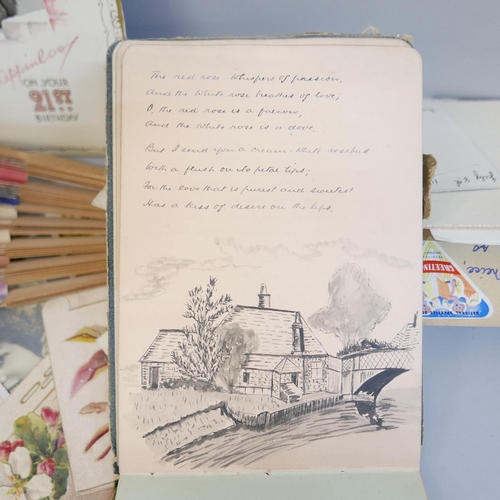 Happiness
ON YOUR
21ST
BIRTHDAY
The red rose whispers of passion,
And the white rose breathes of love;
O, the red rose is a falcon,
And the white rose is a dove.
But I send you a cream-white rosebud
With a flush on its petal tips;
For the love that is purest and sweetest
Has a kiss of desire on the lips.
GREETING